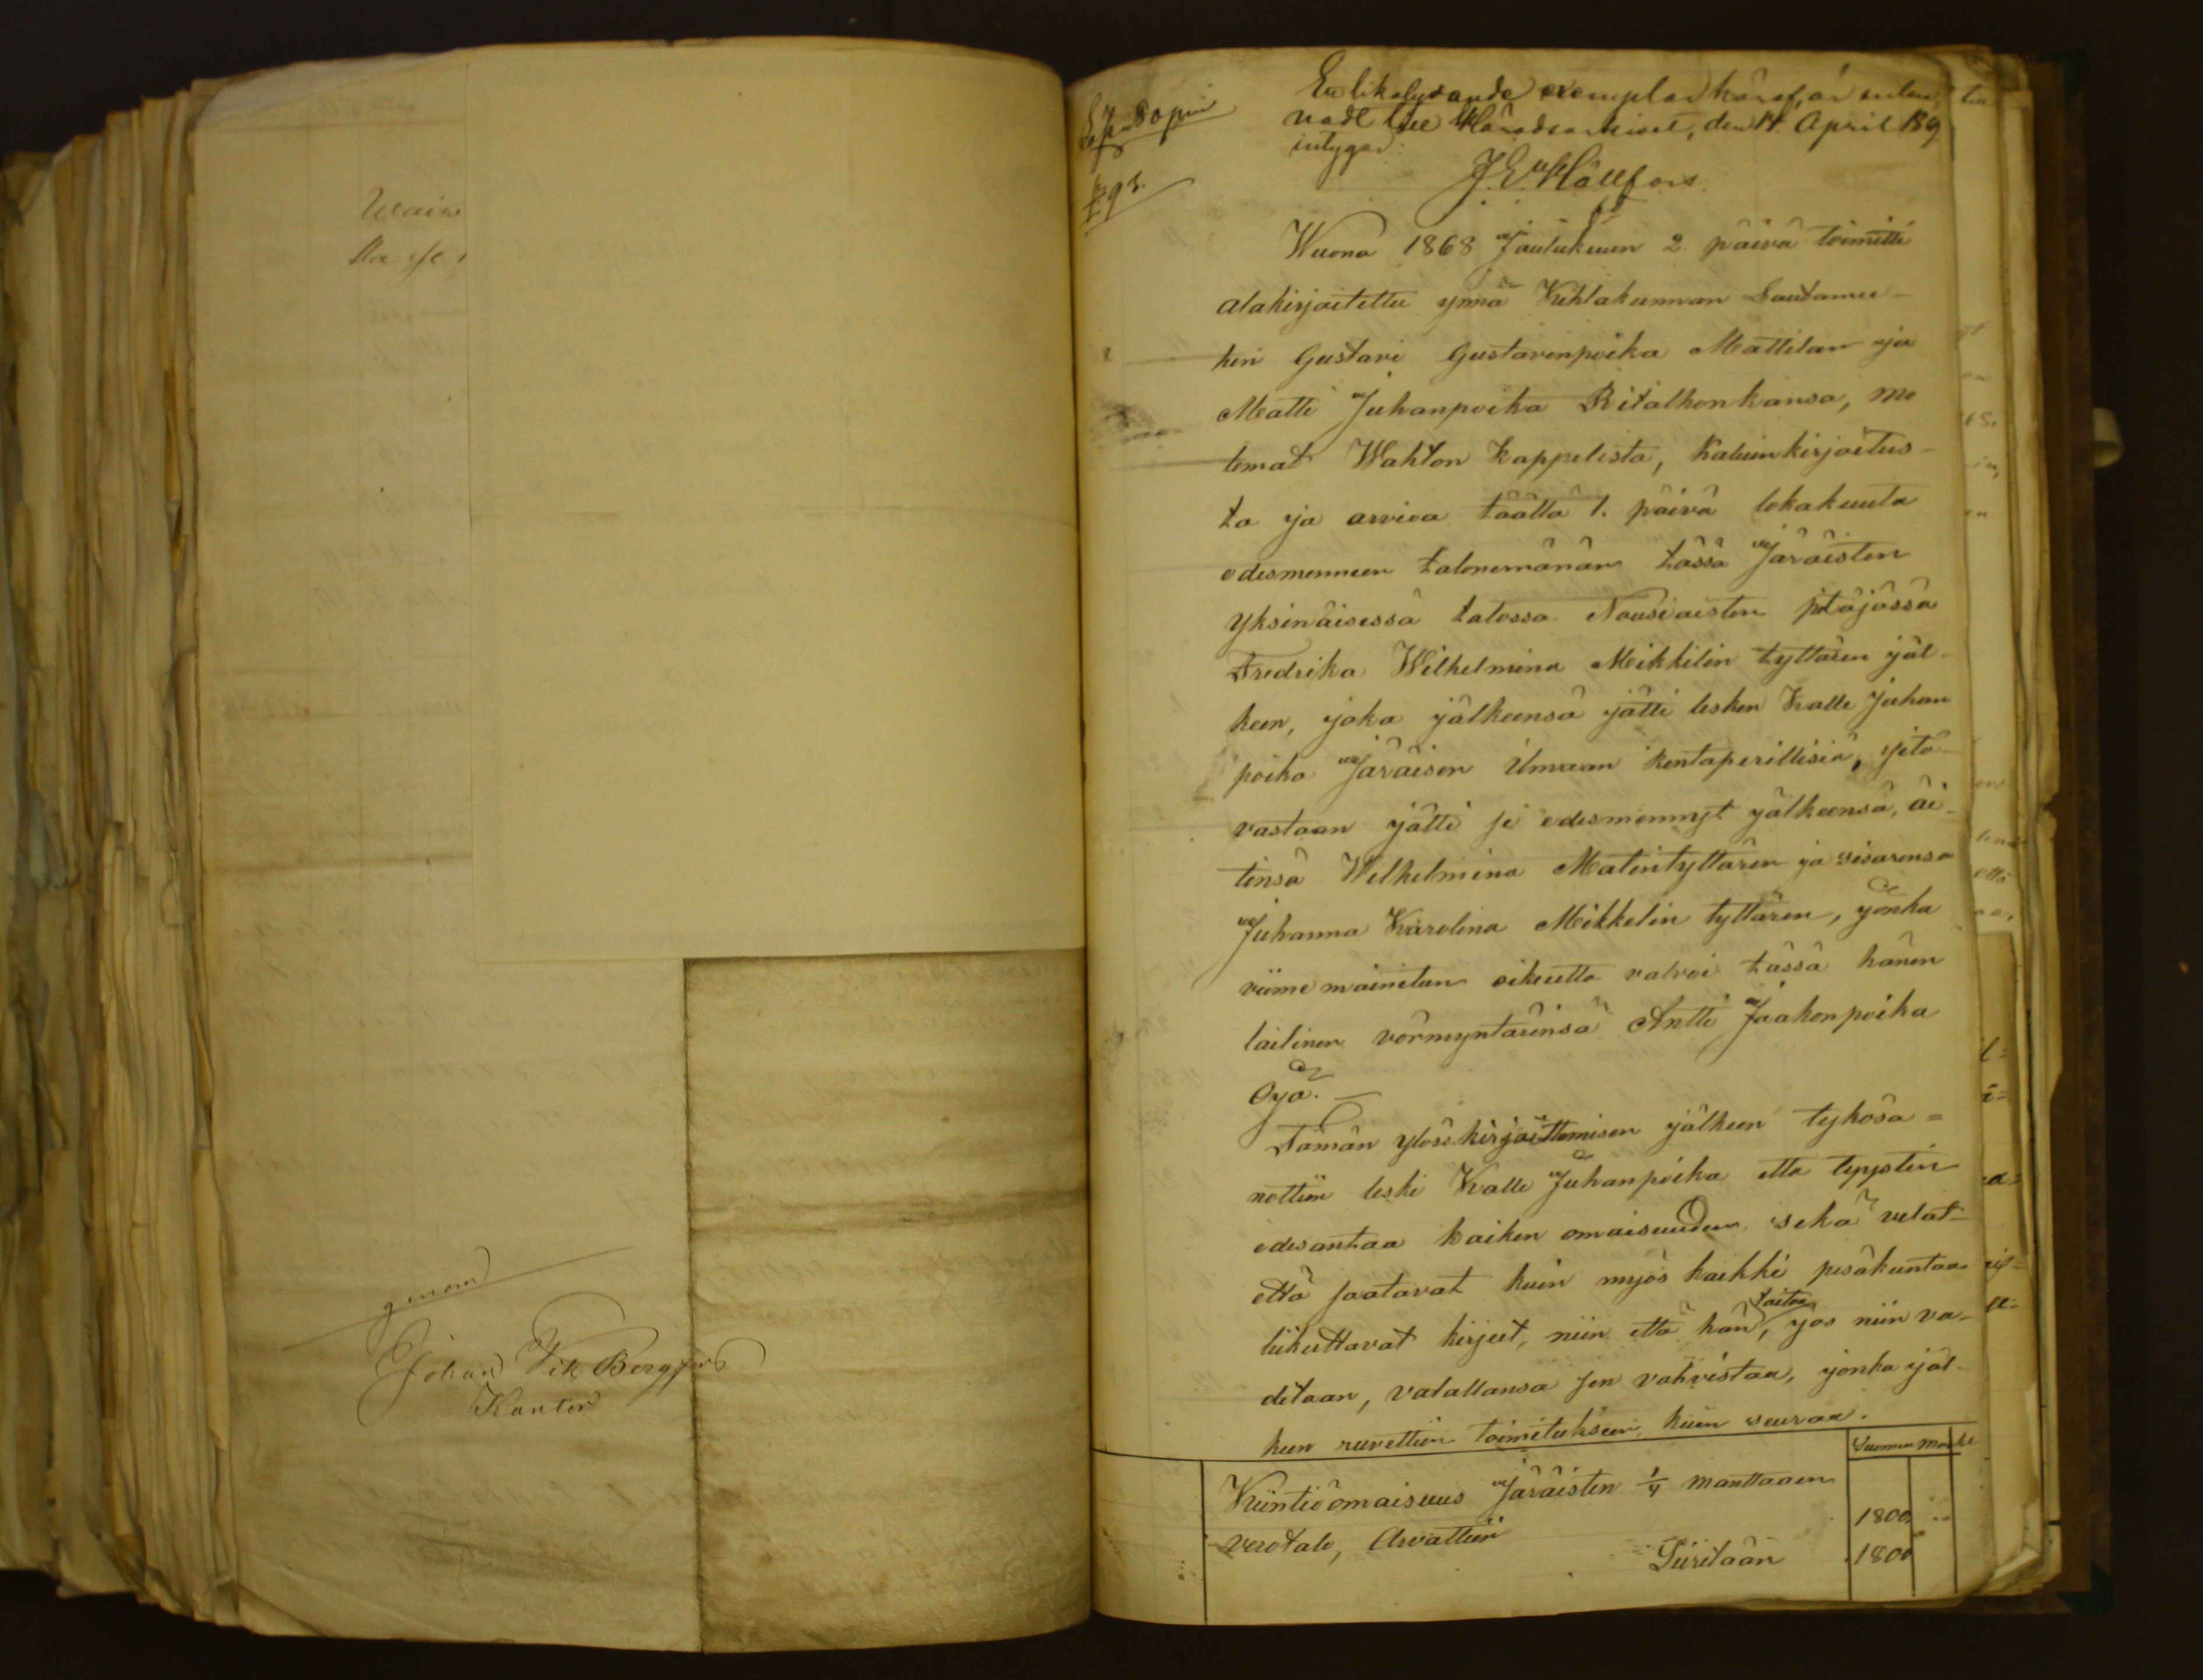 gmom
Johan Vik Bergfors
Kantor
Ett likalydande exemplar häraf, är inlem-
nadt till Häradsarkivet, den 14 April 189
intygar:
J. E. Hällfors
Wuona 1868 Jaulukuun 2. päivä toimitti
alakirjoitettu ynnä Kihlakunnan Lautamie-
hin Gustavi Gustavinpoika Mattilan ja
Matti Juhanpoika Ritalhonkansa, mo
lemat Wahton Kappelista, kaluinkirjoitus-
ta ja arvioa täältä 1. päivä lokakuuta
edesmenneen talonemänän tässä Järäisten
yksinäisessä talossa Nousiaisten pitäjässä
Fredrika Wilhelmina Mikkilin tyttären jäl-
keen, joka jälkeensä jätti lesken Kalle Juhan
poika Järäisen ilmaan rintaperillisiä, sitä-
vastaan jätti se edesmennyt jälkeensä, äi-
tinsä Wilhelmina Matintyttären ja sisarensa
Juhanna Karolina Mikkelin tyttären, jonka
viime mainitun oikeutta valvoi tässä hänen
lailinen vörmyntärinsä Antti Jaakonpoika
Oja. —
Tämän ylöskirjoittamisen jälkeen tykösa=
nottiin leski Kalle Juhanpoika että
edesantaa kaiken omaisuuden sekä velat
että saatavat kuin myös kaikki pesäkuntaa
liikuttavat kirjeet, niin että hän taitaa, jos niin va-
ditaan, valallansa sen vahvistaa, jonka jäl-
keen ruvettiin toimitukseen, kuin seuraa.
Suomen Markk
Kiintiöomaisuus Järäisten 1/4 manttaalin
verotalo, Arvattiin 1800 "
Siiritään 1800